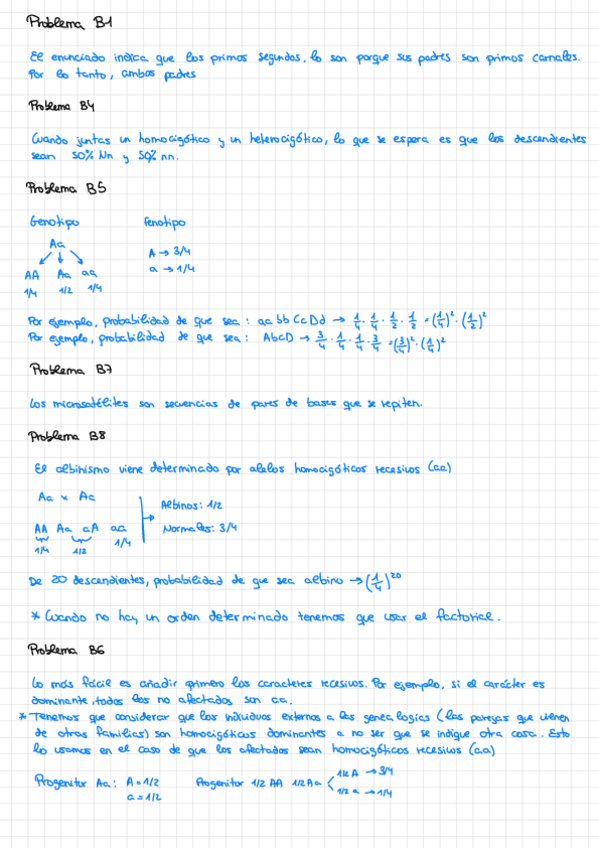 Problema B1
El enunciado indica que los primos segundos, lo son porque sus padres son primos carnales.
Por lo tanto, ambos padres
Problema B4
Cuando juntas un homocigótico y un heterocigótico, lo que se espera es que los descendientes
sean 50% Nn y 50% nn.
Problema B5
Genotipo Fenotipo
Aa
A → 3/4
a → 1/4
AA Aa aa
1/4 1/2 1/4
Por ejemplo, probabilidad de que sea: aa bb Cc Dd → 1/4 · 1/4 · 1/2 · 1/2 = (1/4)² · (1/2)²
Por ejemplo, probabilidad de que sea: AbcD → 3/4 · 1/4 · 1/4 · 3/4 = (3/4)² · (1/4)²
Problema B7
Los microsatélites son secuencias de pares de bases que se repiten.
Problema B8
El albinismo viene determinado por alelos homocigóticos recesivos (aa)
Aa x Aa
Albinos: 1/2
Normales: 3/4
AA Aa aA aa
1/4 1/2 1/4
De 20 descendientes, probabilidad de que sea albino → (1/4)²⁰
* Cuando no hay un orden determinado tenemos que usar el factorial.
Problema B6
Lo más fácil es añadir primero los caracteres recesivos. Por ejemplo, si el carácter es
dominante, todos los no afectados son aa.
* Tenemos que considerar que los individuos externos a las genealogías (las parejas que vienen
de otras familias) son homocigóticos dominantes a no ser que se indique otra cosa. Esto
lo usamos en el caso de que los afectados sean homocigóticos recesivos (aa)
Progenitor Aa: A = 1/2 Progenitor 1/2 AA 1/2 Aa < 1/2 A → 3/4
a = 1/2 1/2 a → 1/4